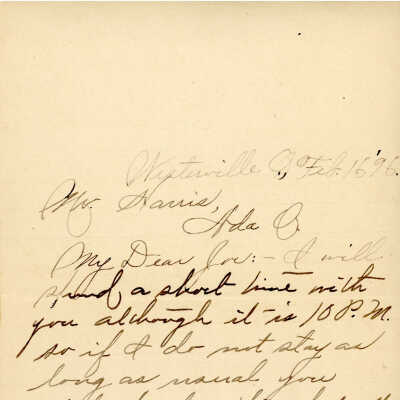 Westerville O., Feb. 16 '96.
Mr. Harris,
Ada O.
My Dear Joe:- I will
spend a short time with
you although it is 10 P.M.
so if I do not stay as
long as usual you